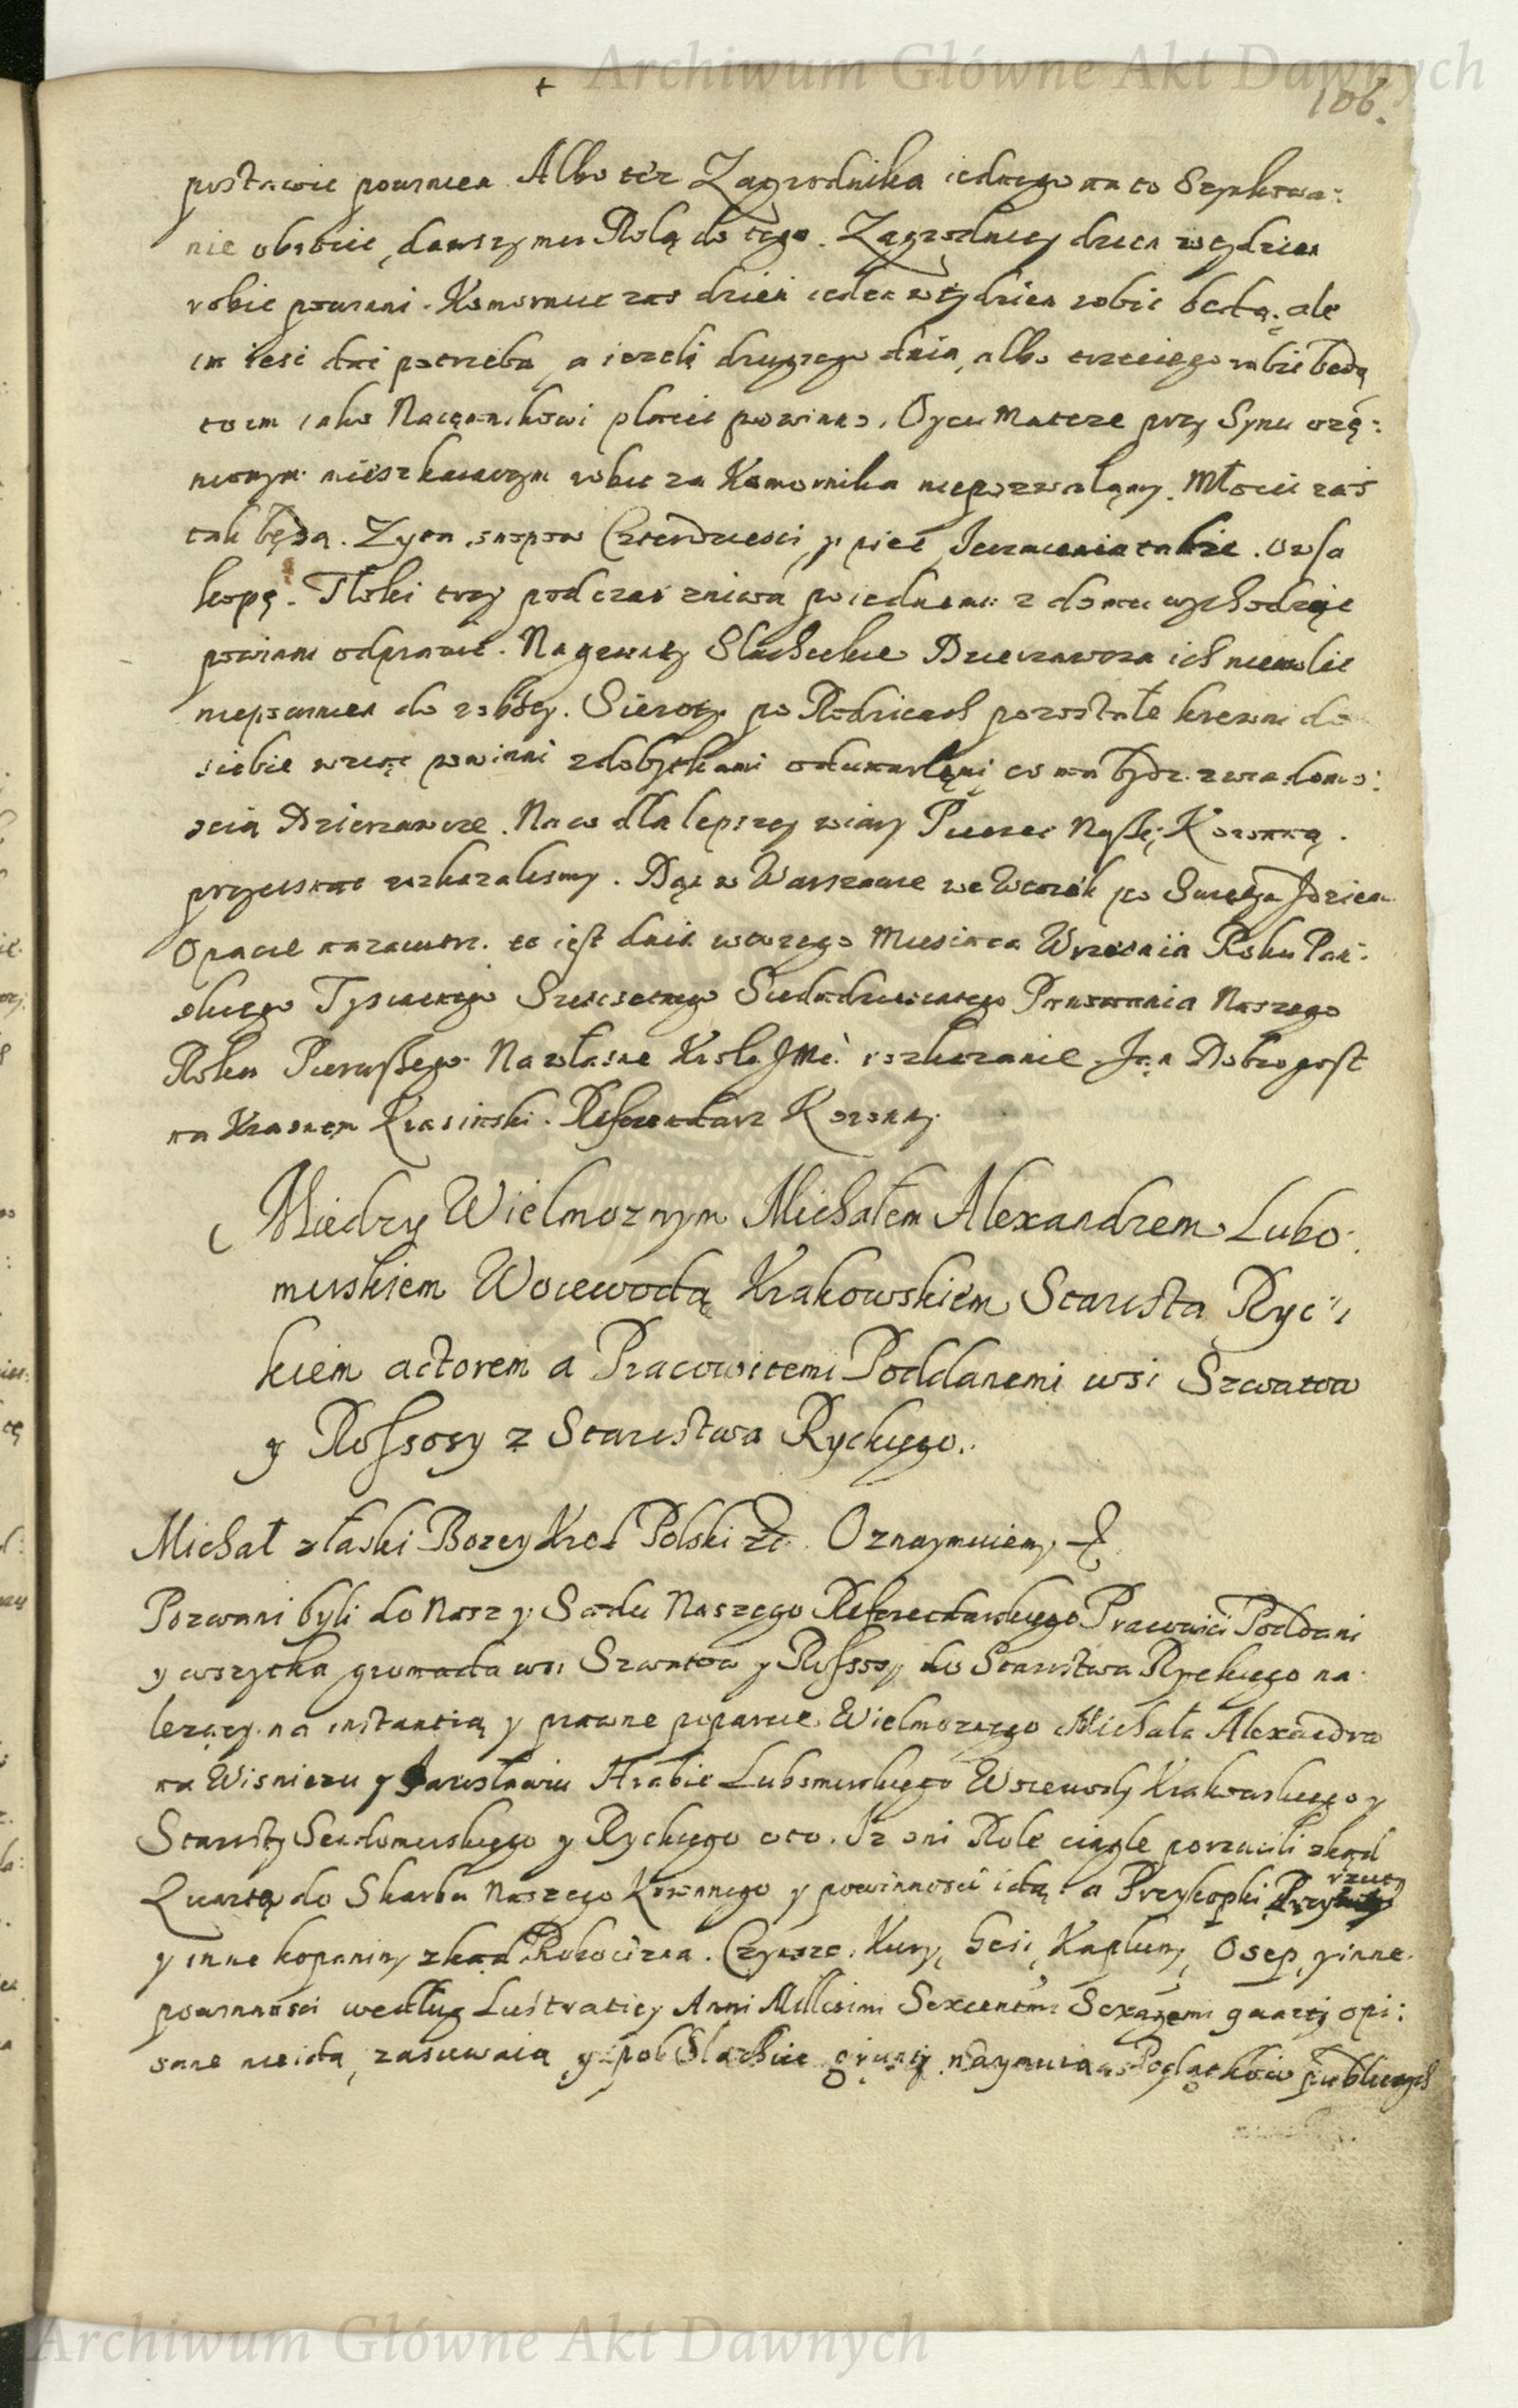 Archiwum Główne Akt Dawnych
106.
postawic powinien Albo też Zagrodnika iednego na to Szynkowa:
nie obrocic, dawszy mu Rolą do tego. Zagrodnicy dzien w tydzien
robic powinni. Komornice zas dzien ieden w tydzien robic będą. ale
im iesc dac potrzeba, a iezeli drugiego dnia, albo trzeciego robic będą
to im iako Naięmnikowi płacic powinno. Oycu Matcze przy Synu ozę:
nionym mieszkaiacym robic za Komornika niepozwalamy. Młocic zaś
tak będą. Zyta snopow Czterdziesci y pięc Ięczmienia także. Owsa
kopę. Tłoki trzy podczas zniwa po iednemu z domu wychodząc
powinni odprawic. Na gewałty Slacheckie Dzierzawca ich niewolic
niepowinien do roboty. Sieroty po Rodzicach pozostałe krewni do
siebie wziąc powinni z dobytkami co ma bydz z wiadomo:
scią Dzierzawcze. Na co dla lepszey wiary Pieczec Naszę Koronną
przycisnac rozkazalismy. Dąn w Warszawie we Wtorek po Swiętym Idzim
Opacie nazaiutrz. to iest dnia wtorego Miesiąca Wrzesnia Roku Pan:
skiego Tysiącnego Szescsetnego Siedmdziesiątego Panowania Naszego
Roku Pierwszego. Na własne Krola JMci rozkazanie Jan Dobrogost
na Krasnem Krasinski. Referendarz Koronny
Miedzy Wielmoznym Michałem Alexandrem Lubo:
mirskiem Woiewodą Krakowskiem Starostą Ryc:
kiem actorem a Pracowitemi Poddanemi wsi Szwatow
y Rossosy z Starostwa Ryckiego.
Michał z łaski Bozey Krol Polski etc. Oznaymuiemy etc.
Pozwani byli do Nas y Sądu Naszego Referendarskiego Pracowici Poddani
y wszytka gromada wsi Szwatow y Rossosy do Starostwa Ryckiego na:
lezący na instantią y prawne poparcie Wielmoznego Michała Alexandra
na Wisniczu y Jarosławiu Hrabie Lubomirskiego Woiewody Krakowskiego y
Starosty Sendomirskiego y Ryckiego oto. Iz oni Role ciągle porzucili zkąd
Quartą do Skarbu Naszego Koronnego y powinnosci idą a Przykopki Przy rzuty
y inne kopaniny zkąd Robocizna. Czynsze, Kury, Gesi, Kapłuny, Osep, y inne
powinnosci według Lustratiey Anni Millesimi Sexcentmi Sexagemi quarti opi:
sane nie idą, zasiewaią y pol Slachcie grunty naymuią Podatkow publicznych
Archiwum Główne Akt Dawnych